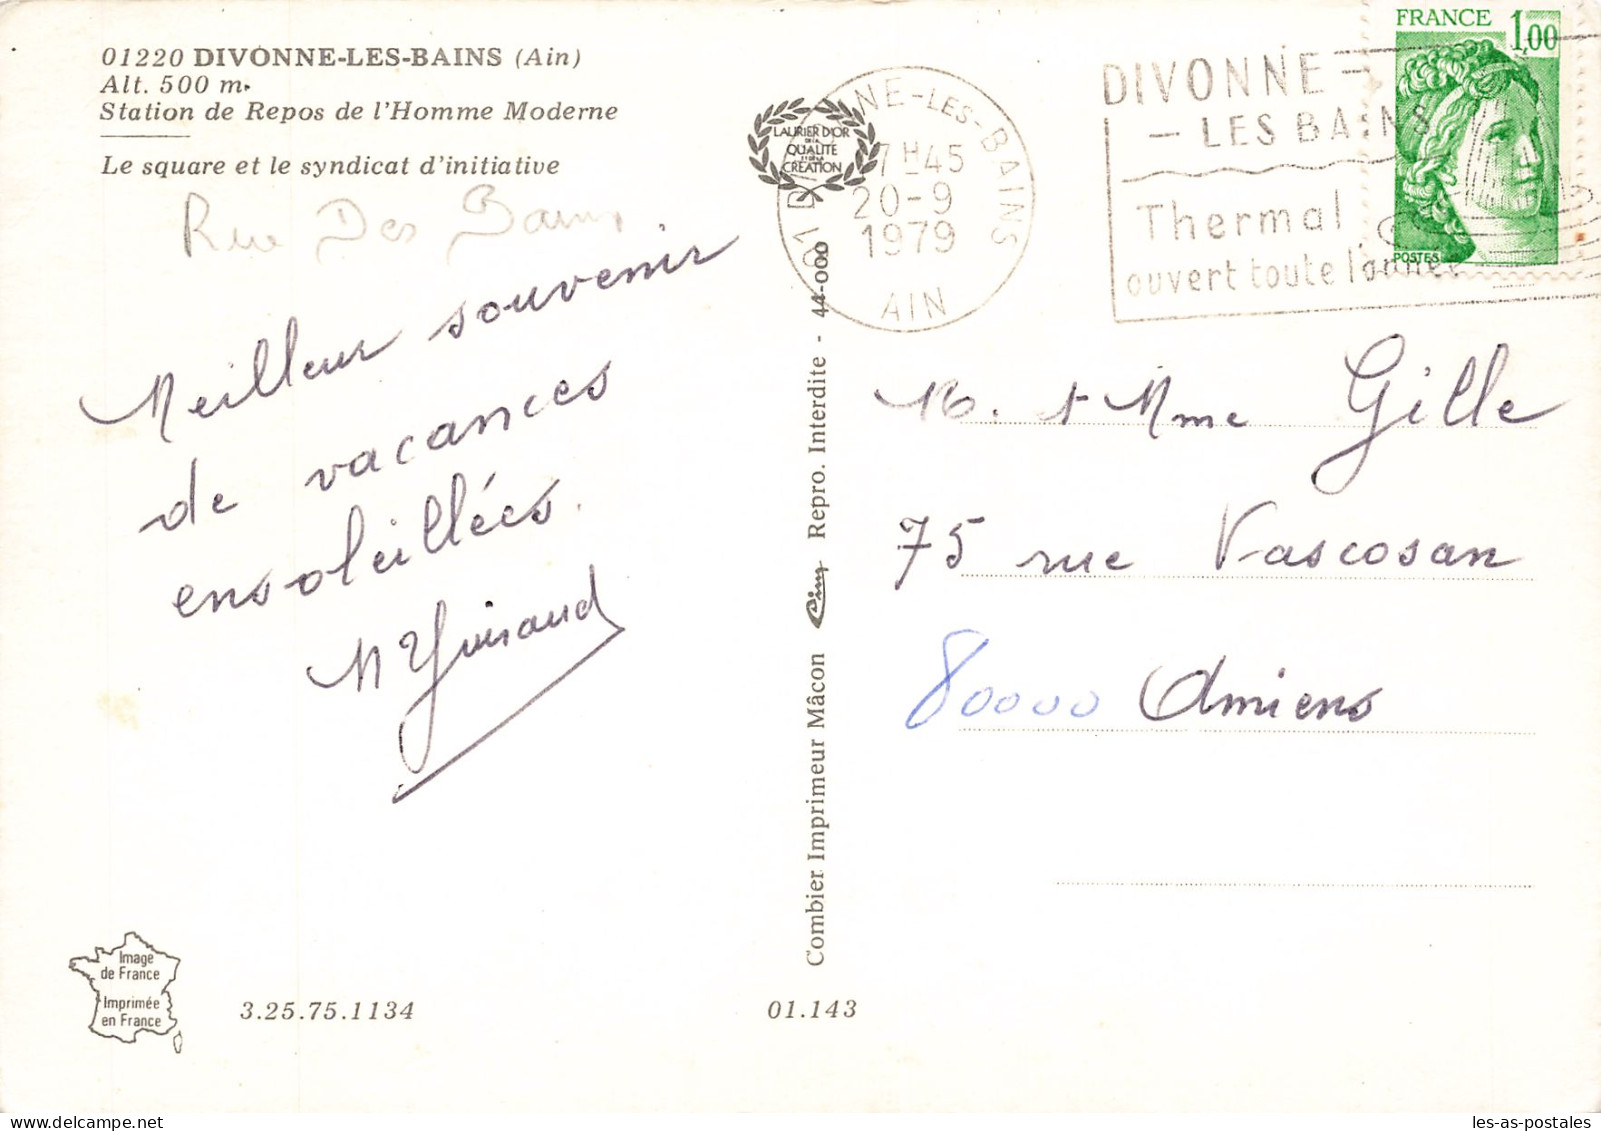 01220 DIVONNE-LES-BAINS (Ain)
Alt. 500 m.
Station de Repos de l'Homme Moderne
Le square et le syndicat d'initiative
Rue Des Bains
Meilleur souvenir
de vacances
ensoleillées.
M Guiraud
Image
de France
Imprimée
en France
3.25.75.1134
01.143
Combier Imprimeur Mâcon Cim Repro. Interdite - 44-000
LAURIER D'OR
DE LA
QUALITÉ
ET DE LA
CRÉATION
01 DIVONNE-LES-BAINS
17 H 45
20-9
1979
AIN
DIVONNE-
-LES BAINS
Thermal
ouvert toute l'année
FRANCE 1,00
POSTES
M. et Mme Gille
75 rue Vascosan
80000 Amiens
les-as-postales